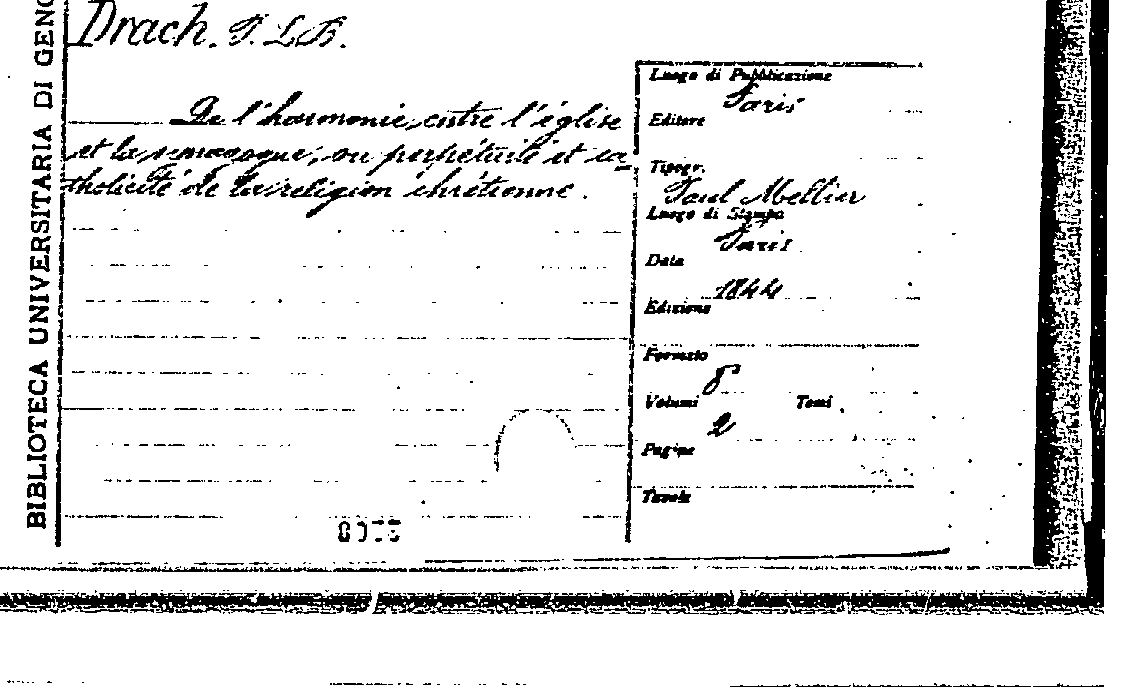 BIBLIOTECA UNIVERSITARIA DI GENO
Drach. P. L. B.
De l'harmonie entre l'église
et la synagogue, ou perpétuité et ca-
tholicité de la religion chrétienne.
Luogo di Pubblicazione
Paris
Editore
Tipogr.
Paul Mellier
Luogo di Stampa
Paris
Data
1844
Edizione
Formato
8°
Volumi Tomi
2
Pagine
Tavole